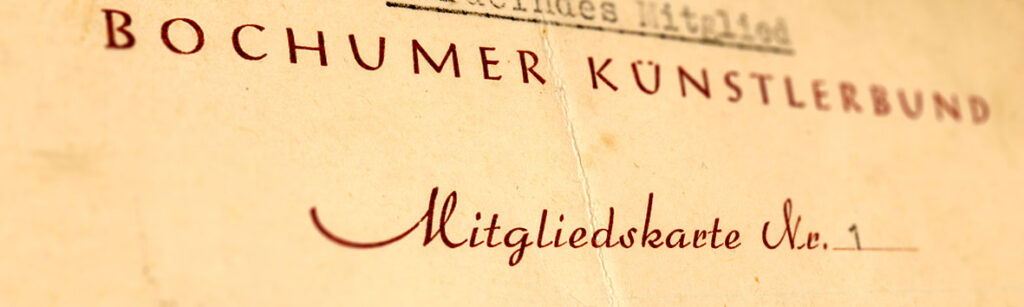 Mitglied
BOCHUMER KÜNSTLERBUND
Mitgliedskarte Nr. 1